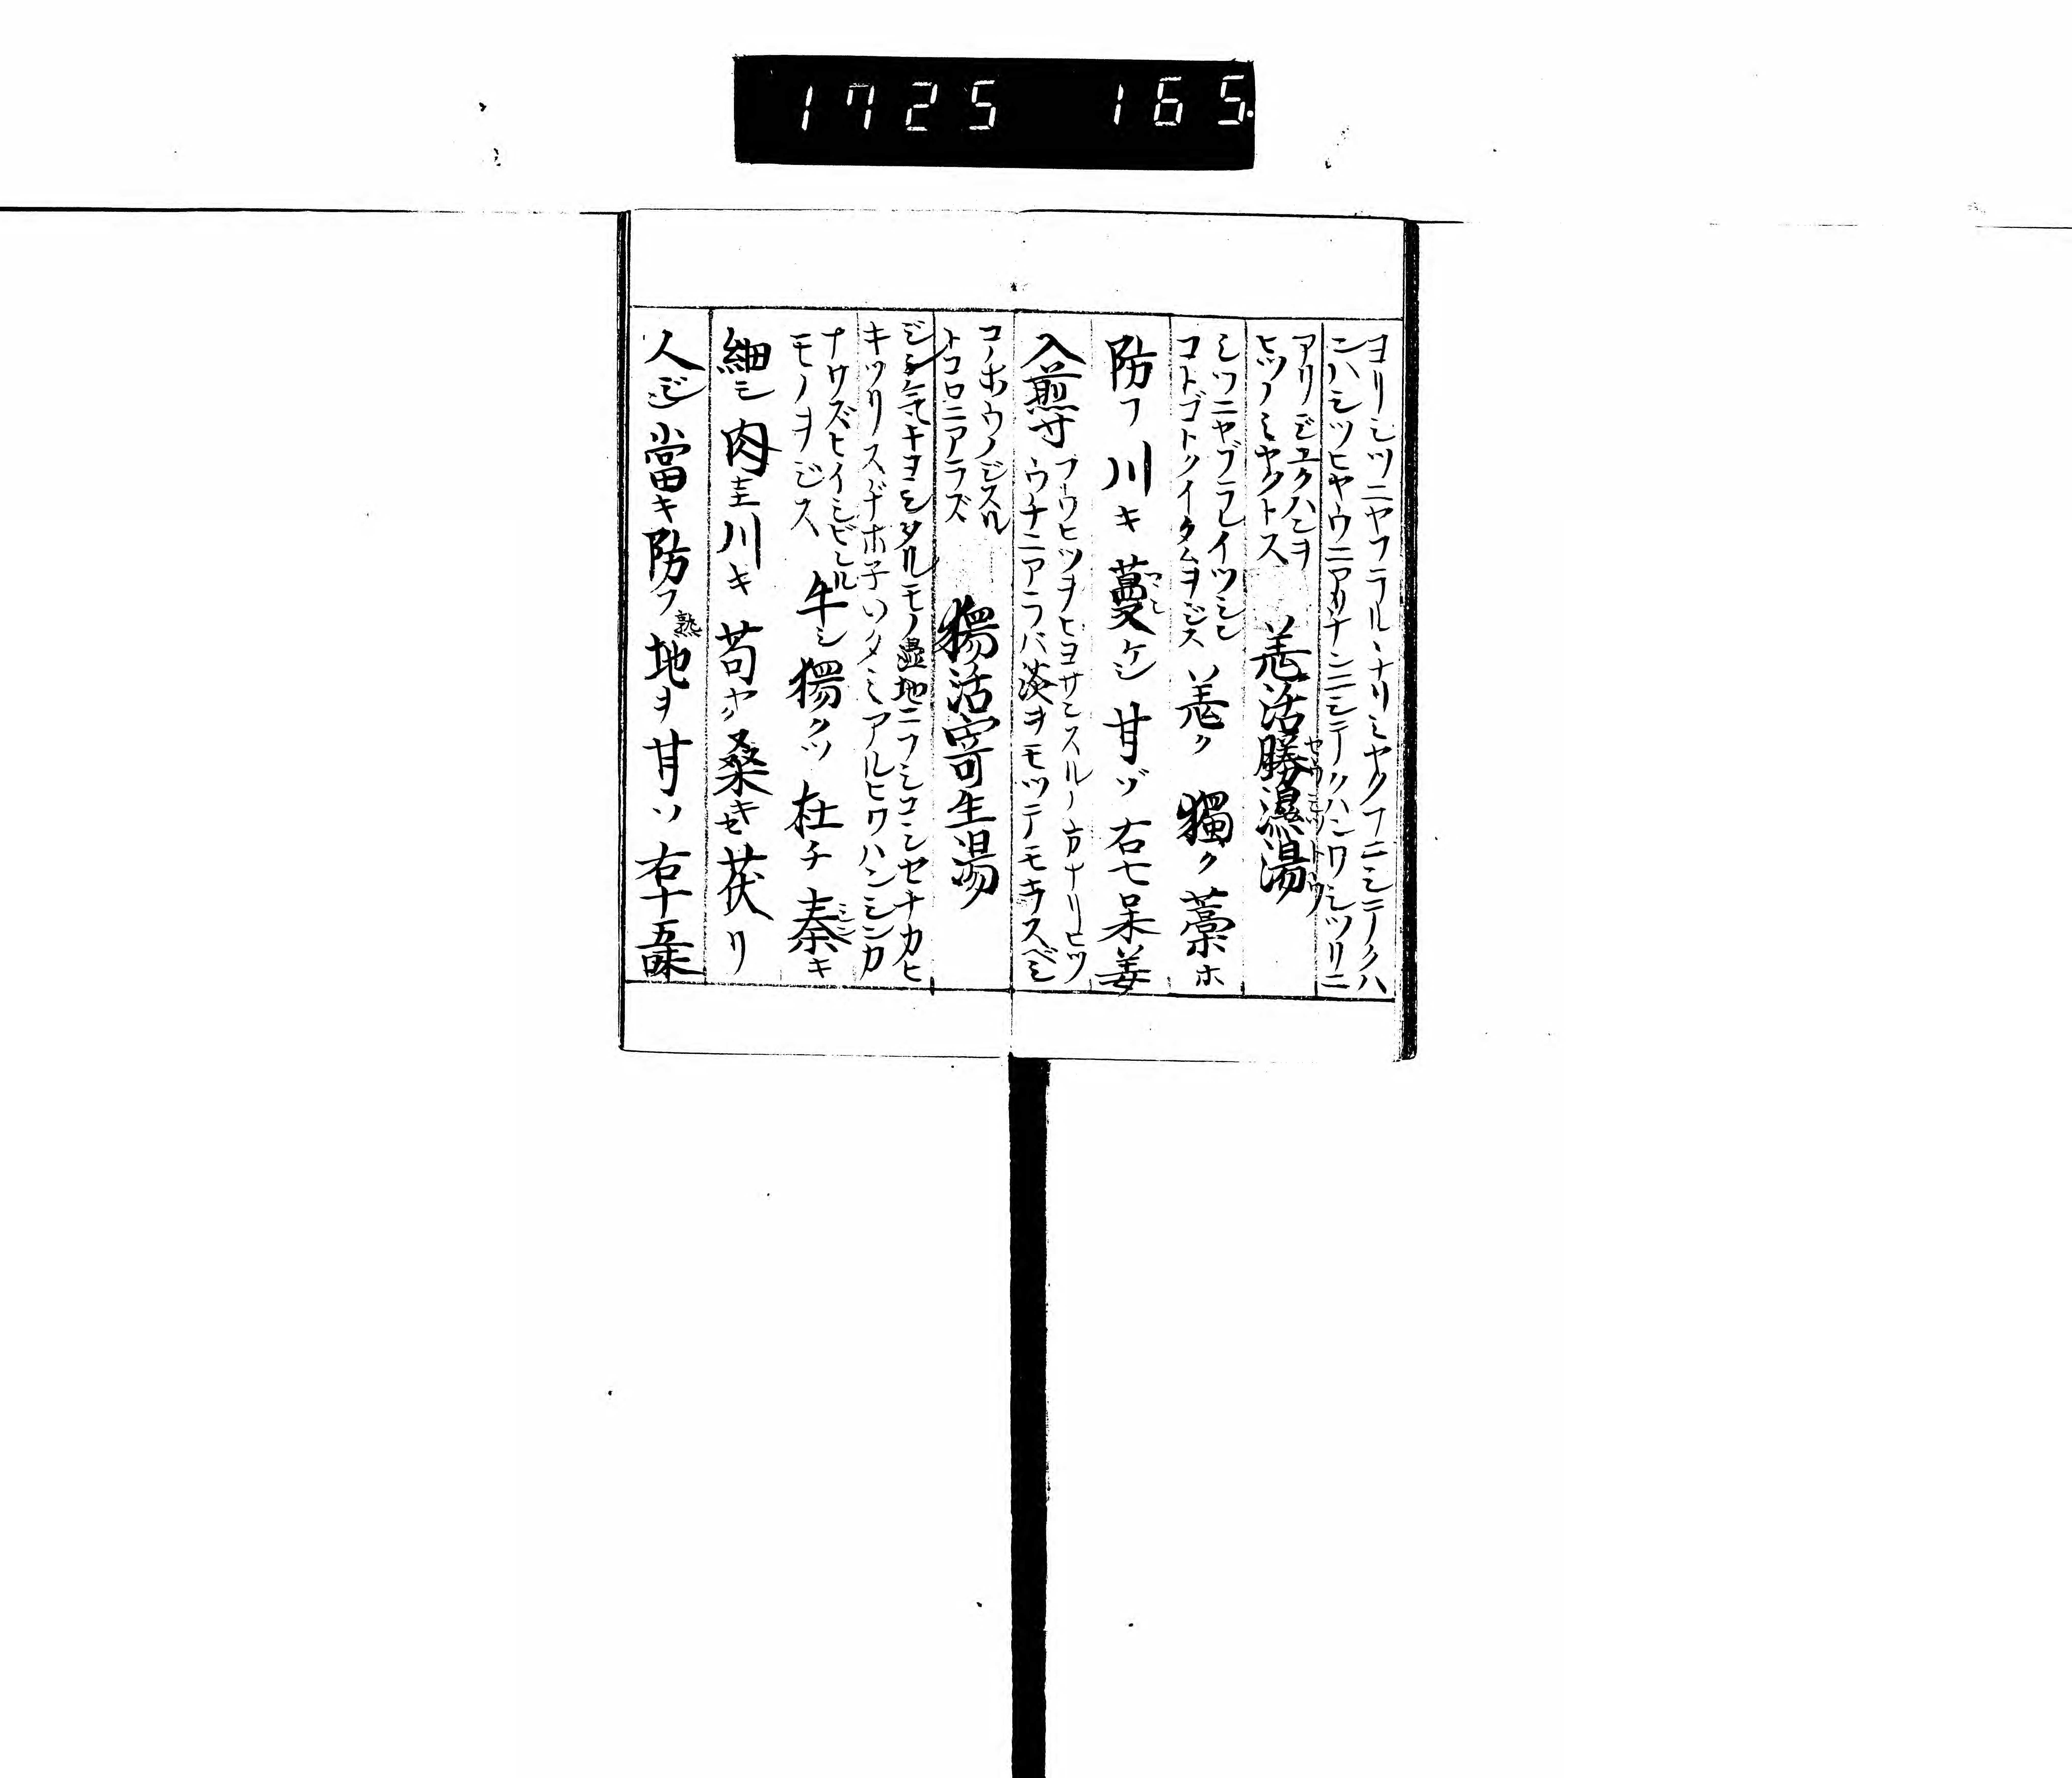 1725 165.
ヨリシツニヤフラルヽナリミヤクフニシテノクハ
ニハシツヒヤウニアリナンニシテクハンワシツリニ
アリジユクハンヲ
ヒツノミヤクトス
羗活勝濕湯
シツニヤブラレイツシン
コトゴトクイタムヲジス
羗ク 獨ク 藁ホ
防フ 川キ 蔓ケシ 甘ヅ 右七呆姜
入煎寸
フウヒツヲヒヨサンスルノ方ナリヒツ
ウチニアラバ 淡ヲモツテモキスベシ
コノホウノジスル
トコロニアラズ
獨活寄生湯
ジンキキヨシタルモノ濕地ニフシコシセナカヒ
キツリスボナホ子いタミアルヒワハンシンカ
ナワズヒイシビル
モノヲジス
牛シ 獨クツ 杜チ 秦キ
細シ 肉圭 川キ 苟ヤク 桑キセ 茯リ
人ジン 當キ 防フ 熟地ヲ 甘ソ 右十五味